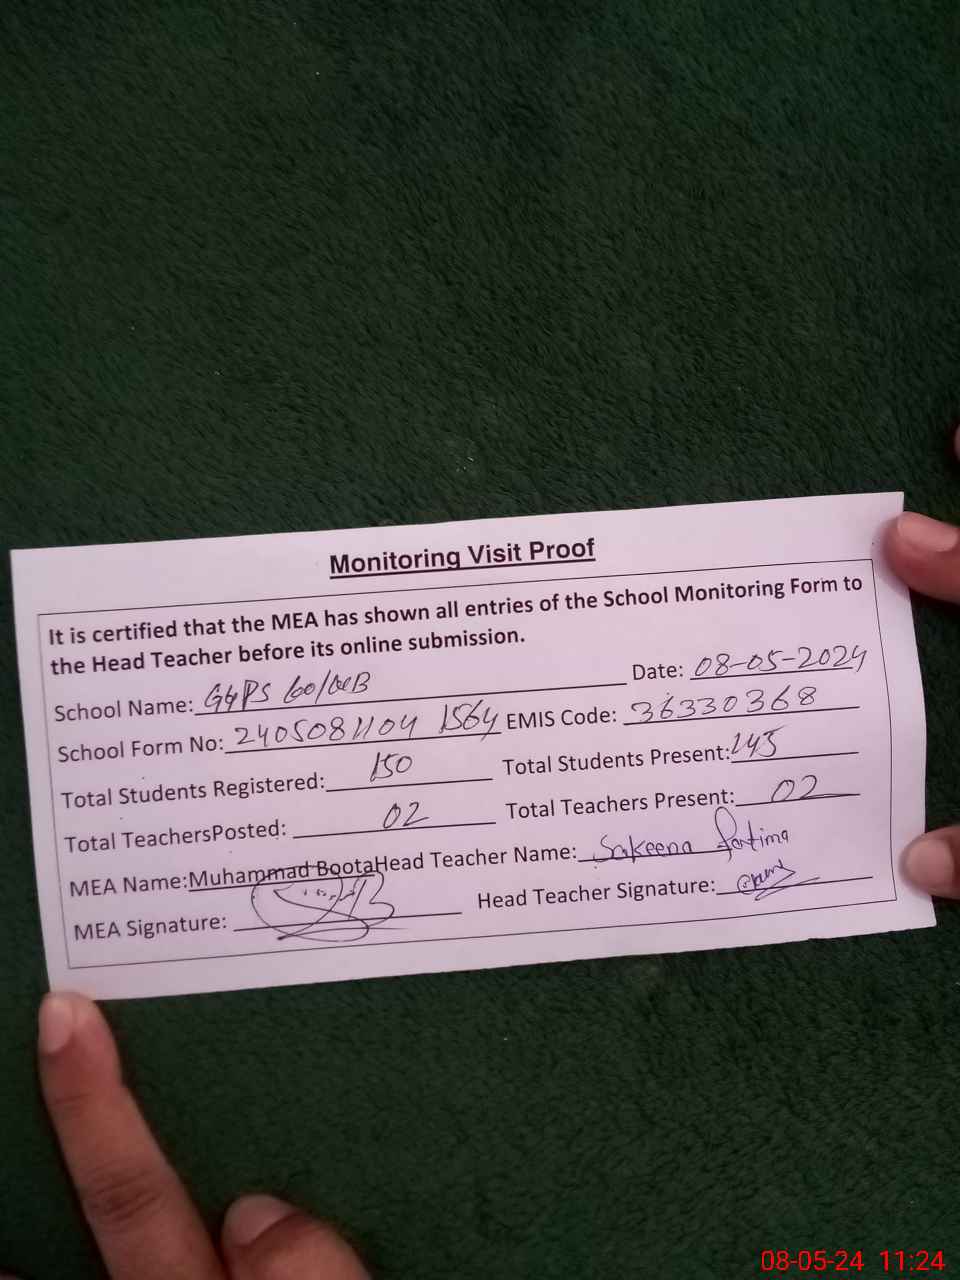 Monitoring Visit Proof
It is certified that the MEA has shown all entries of the School Monitoring Form to
the Head Teacher before its online submission.
School Name: GGPS 60/GB Date: 08-05-2024
School Form No: 2405081104 1564 EMIS Code: 36330368
Total Students Registered: 150 Total Students Present: 143
Total TeachersPosted: 02 Total Teachers Present: 02
MEA Name: Muhammad Boota Head Teacher Name: Sakeena Fatima
MEA Signature: Head Teacher Signature:
08-05-24 11:24